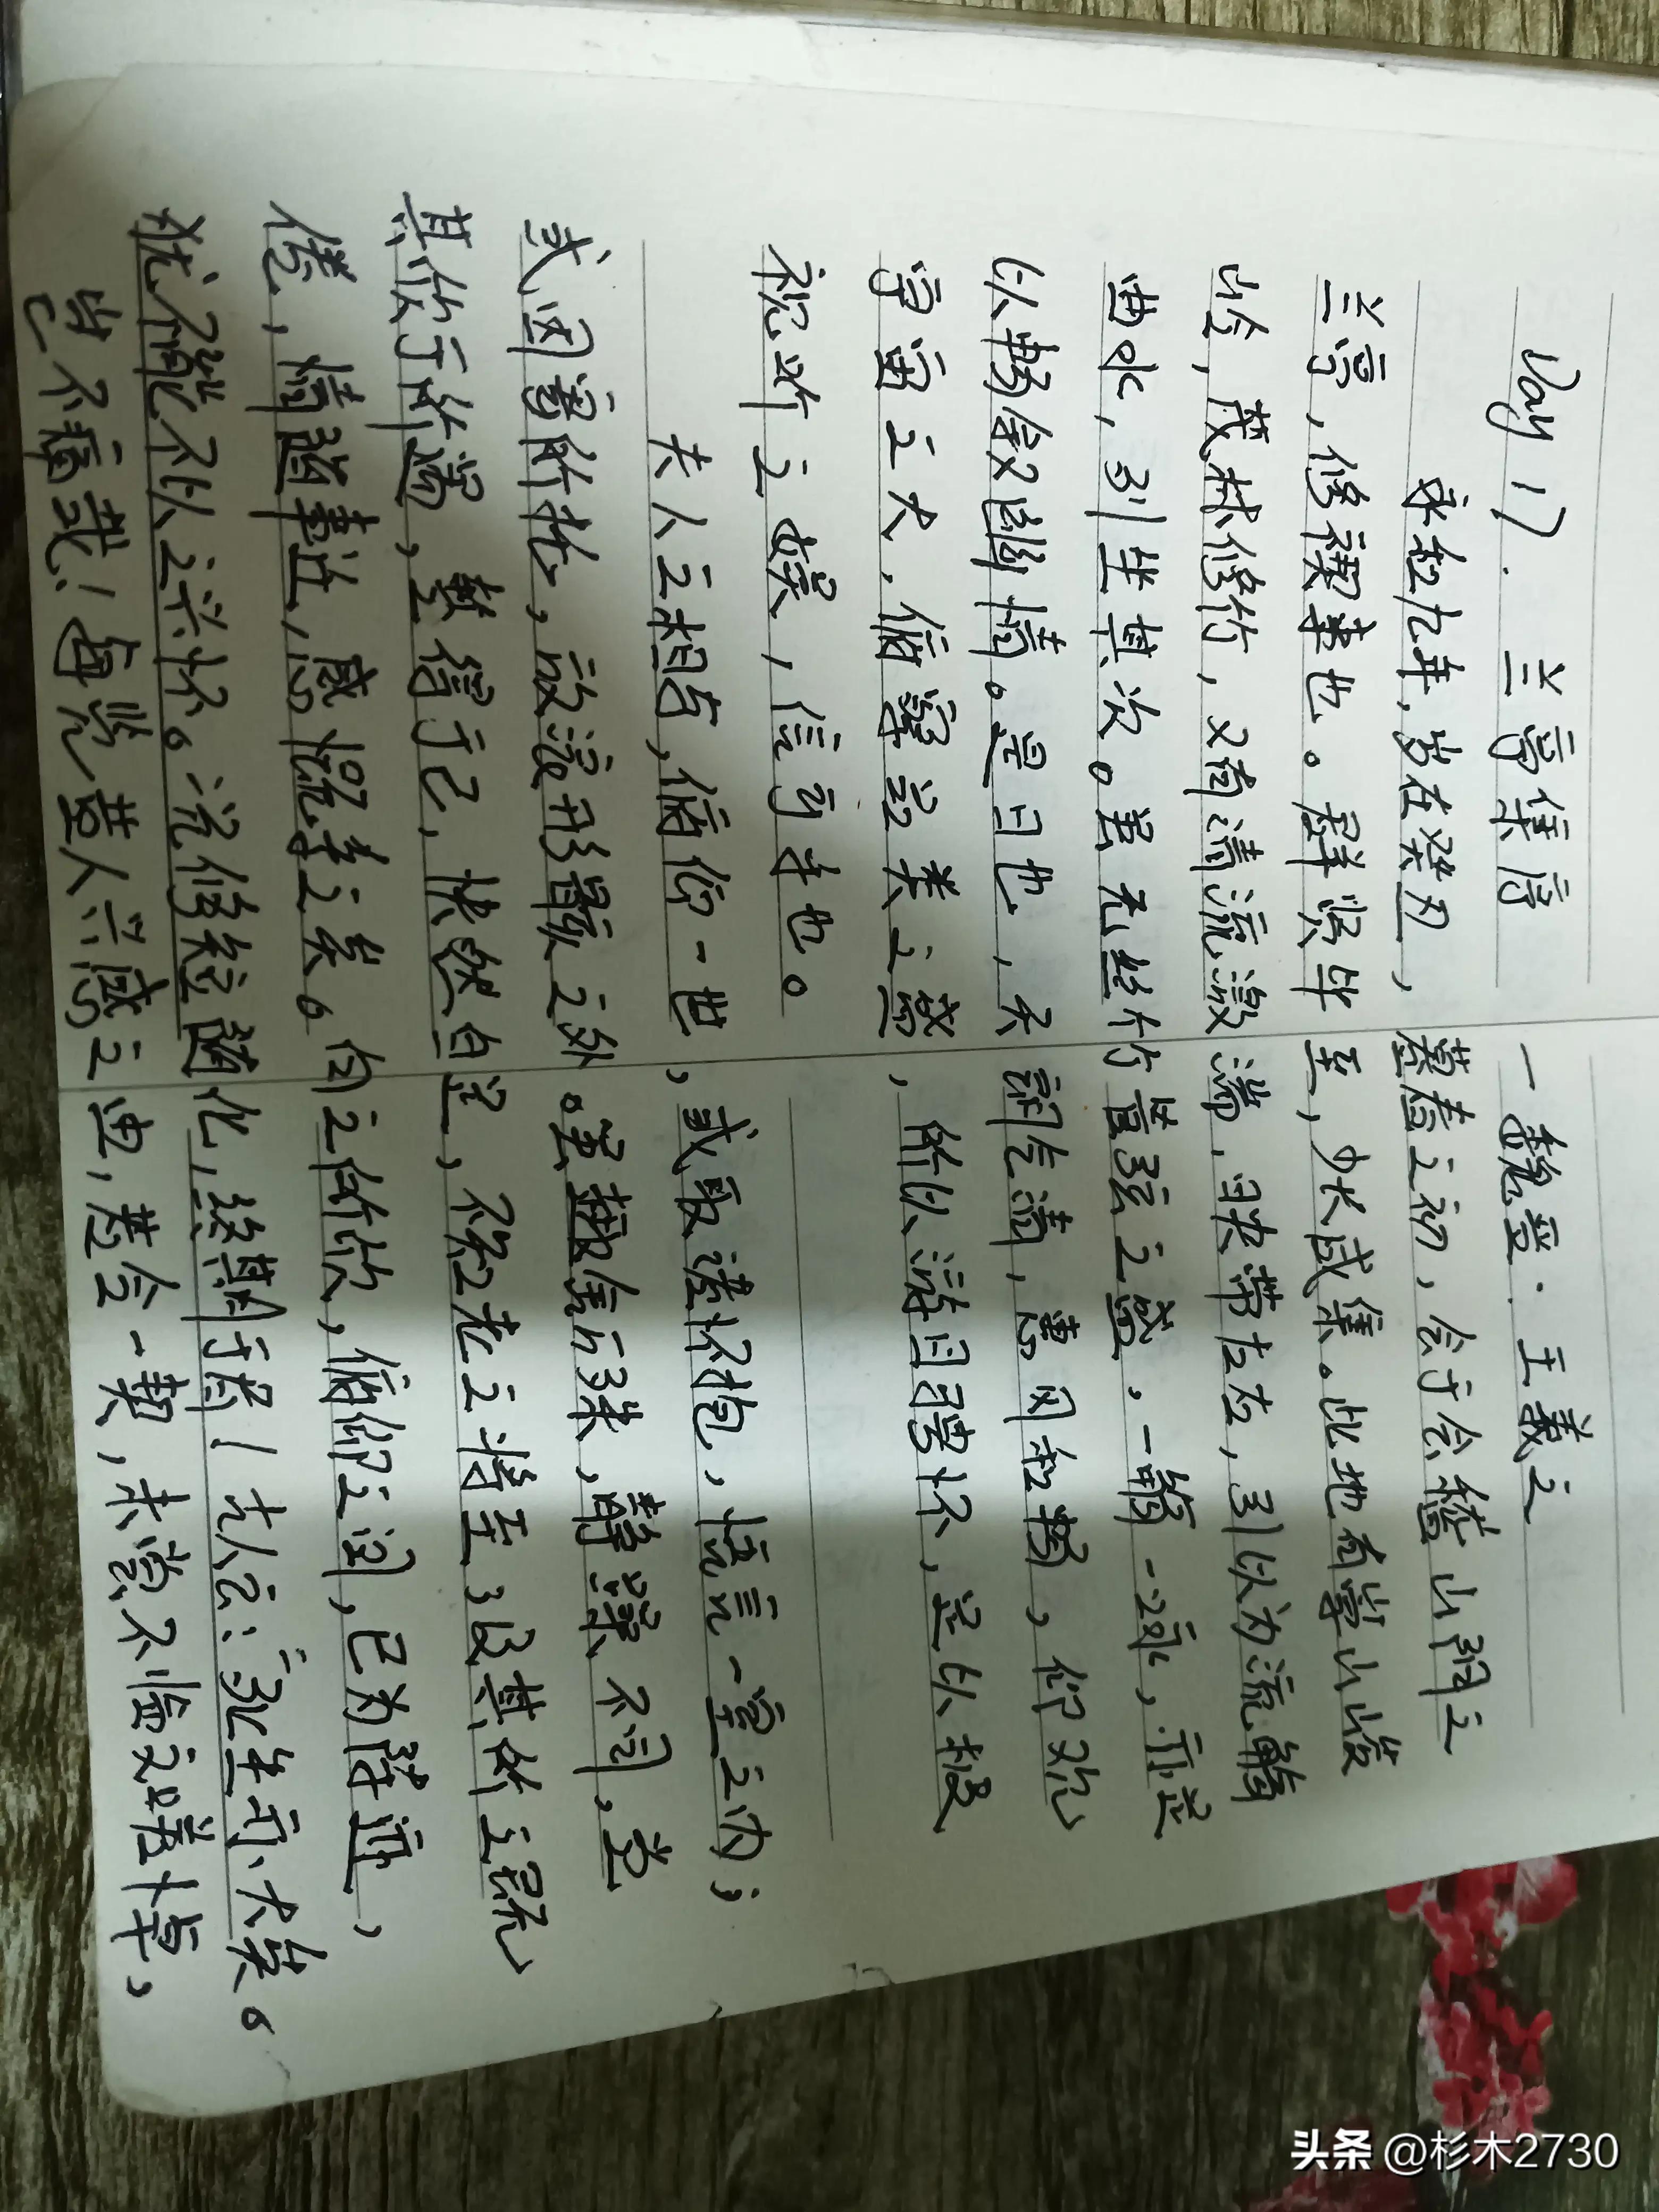 Day 17. 兰亭集序 — 魏晋·王羲之
永和九年,岁在癸丑,暮春之初,会于会稽山阴之
兰亭,修禊事也。群贤毕至,少长咸集。此地有崇山峻
岭,茂林修竹,又有清流激湍,映带左右,引以为流觞
曲水,列坐其次。虽无丝竹管弦之盛,一觞一咏,亦足
以畅叙幽情。是日也,天朗气清,惠风和畅,仰观
宇宙之大,俯察品类之盛,所以游目骋怀,足以极
视听之娱,信可乐也。
夫人之相与,俯仰一世,或取诸怀抱,悟言一室之内;
或因寄所托,放浪形骸之外。虽趣舍万殊,静躁不同,当
其欣于所遇,暂得于己,快然自足,不知老之将至;及其所之既
倦,情随事迁,感慨系之矣。向之所欣,俯仰之间,已为陈迹,
犹不能不以之兴怀。况修短随化,终期于尽!古人云:“死生亦大矣。
岂不痛哉!每览昔人兴感之由,若合一契,未尝不临文嗟悼,
头条 @杉木2730